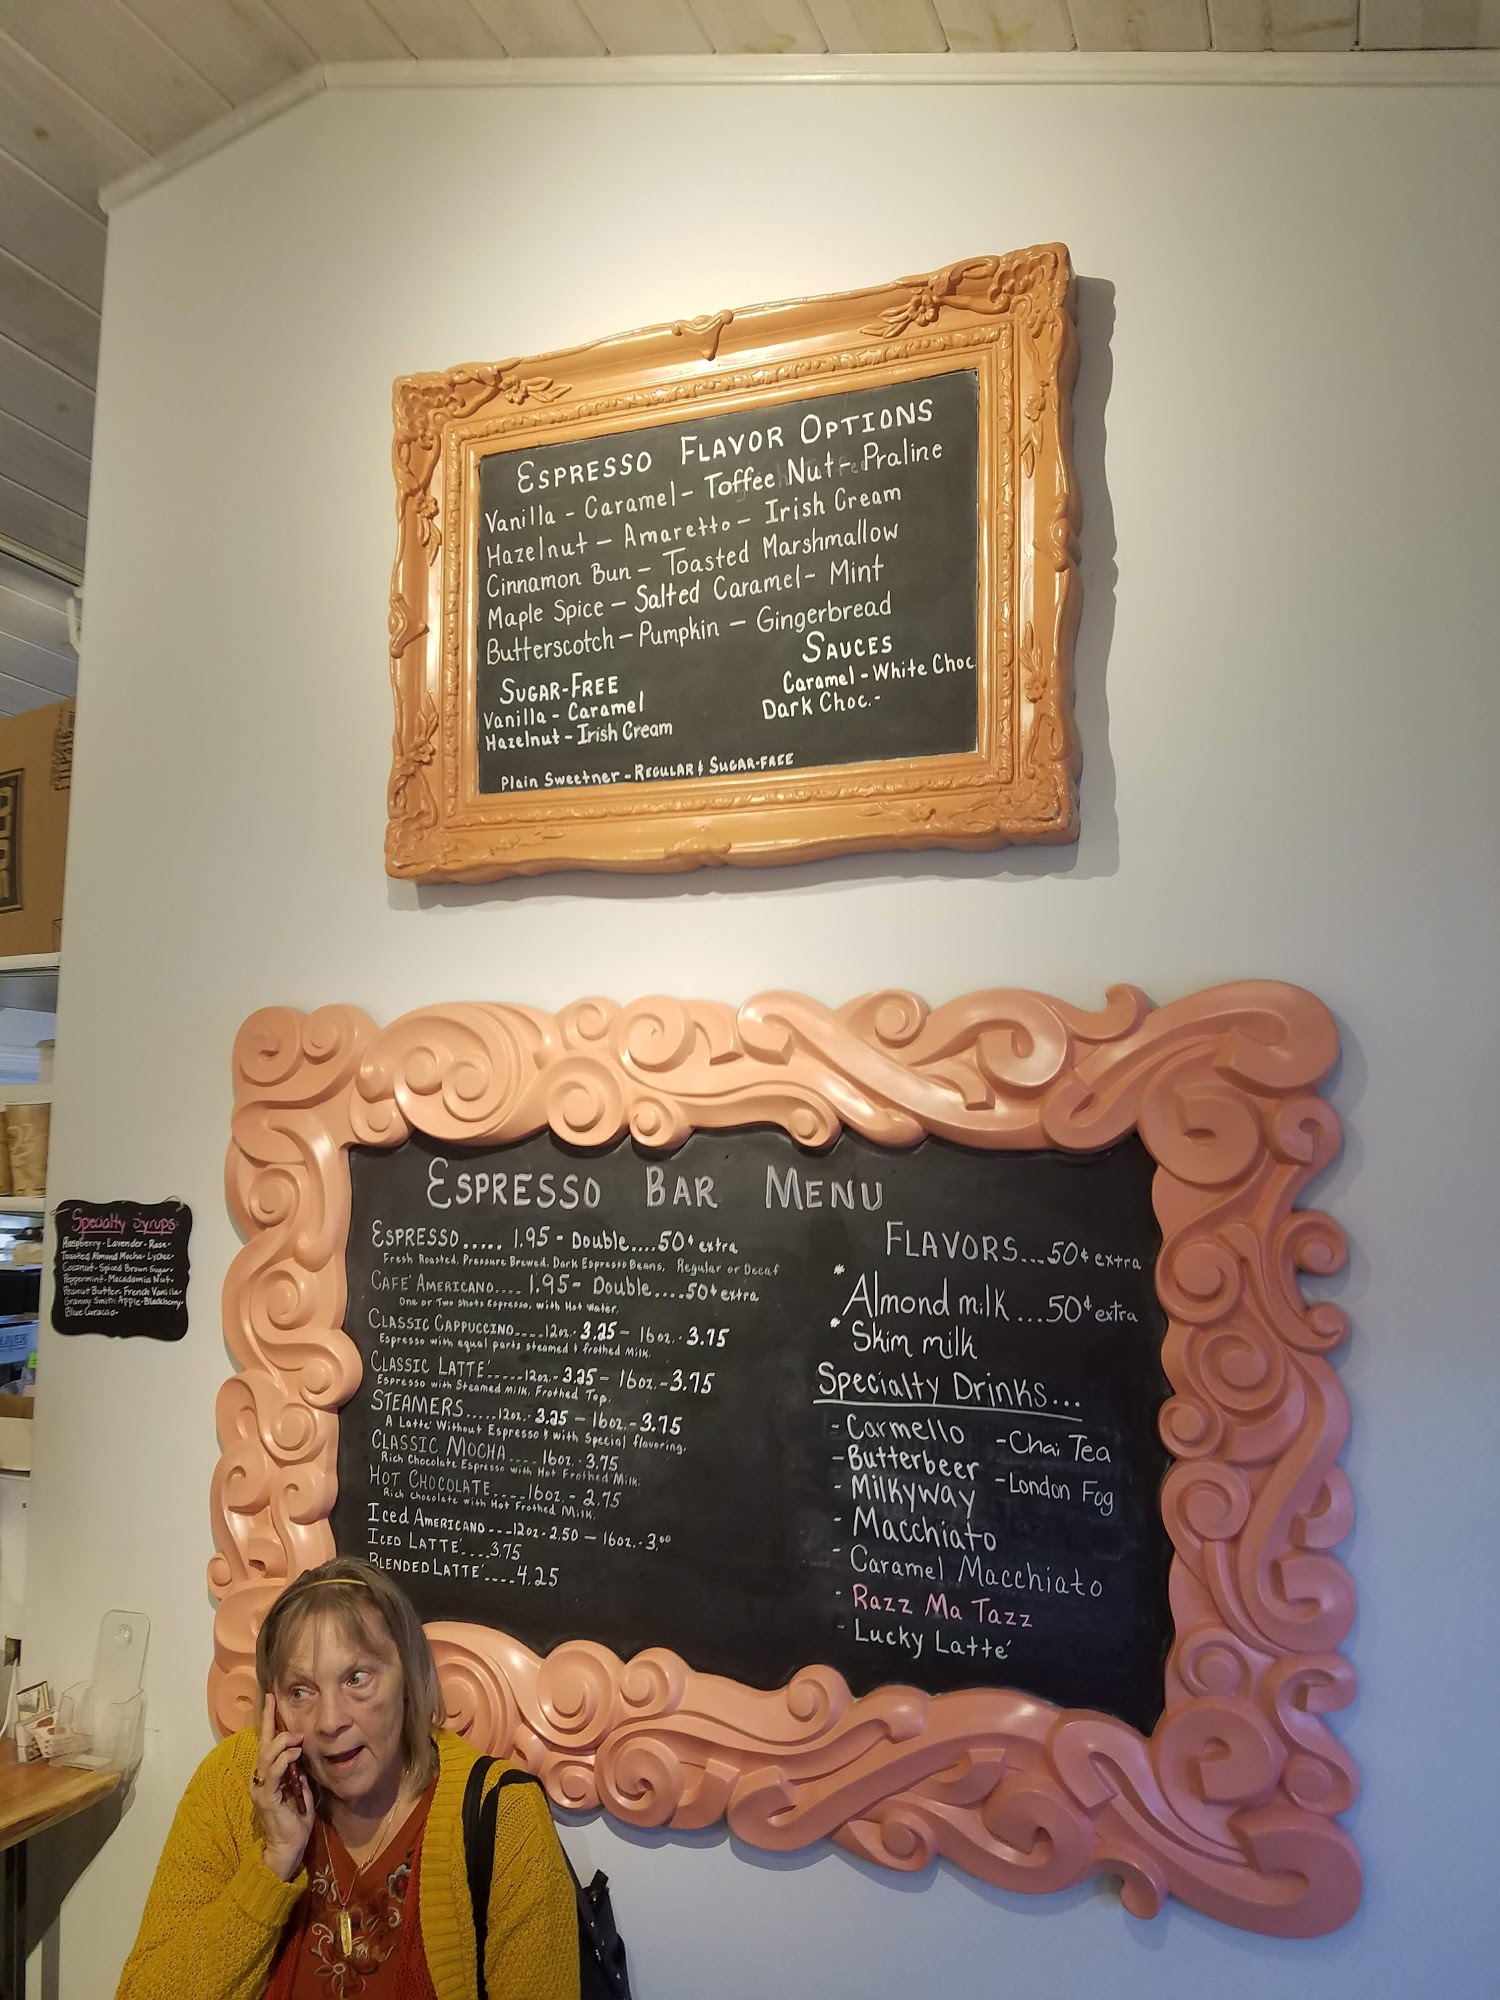 ESPRESSO FLAVOR OPTIONS
Vanilla - Caramel - Toffee Nut - Praline
Hazelnut - Amaretto - Irish Cream
Cinnamon Bun - Toasted Marshmallow
Maple Spice - Salted Caramel - Mint
Butterscotch - Pumpkin - Gingerbread
SUGAR-FREE
Vanilla - Caramel
Hazelnut - Irish Cream
SAUCES
Caramel - White Choc
Dark Choc. -
Plain Sweetner - REGULAR & SUGAR-FREE
Specialty Syrups:
Raspberry - Lavender - Rose -
Toasted Almond Mocha - Lychee -
Coconut - Spiced Brown Sugar -
Peppermint - Macadamia Nut -
Peanut Butter - French Vanilla -
Granny Smith Apple - Blackberry -
Blue Curacao -
ESPRESSO BAR MENU
ESPRESSO..... 1.95 - Double....50¢ extra
Fresh Roasted, Pressure Brewed, Dark Espresso Beans. Regular or Decaf
CAFE´ AMERICANO.... 1.95 - Double.....50¢ extra
One or Two shots Espresso, with Hot Water.
CLASSIC CAPPUCCINO....12oz. - 3.25 - 16oz. - 3.75
Espresso with equal parts steamed & frothed Milk.
CLASSIC LATTE´.....12oz. - 3.25 - 16oz. - 3.75
Espresso with Steamed Milk, Frothed Top.
STEAMERS.....12oz. - 3.25 - 16oz. - 3.75
A Latte´ Without Espresso & with Special flavoring.
CLASSIC MOCHA.... 16oz. - 3.75
Rich Chocolate Espresso with Hot Frothed Milk.
HOT CHOCOLATE....16oz. - 2.75
Rich Chocolate with Hot Frothed Milk.
Iced AMERICANO...12oz - 2.50 - 16oz. - 3.00
ICED LATTE´....3.75
BLENDED LATTE´....4.25
FLAVORS...50¢ extra
* Almond milk...50¢ extra
* Skim milk
Specialty Drinks...
- Carmello - Chai Tea
- Butterbeer - London Fog
- Milkyway
- Macchiato
- Caramel Macchiato
- Razz Ma Tazz
- Lucky Latte´